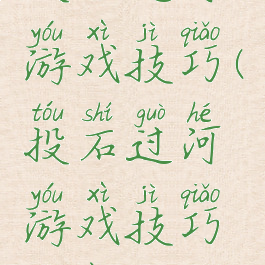 yóu xì jì qiǎo
游戏技巧(
tóu shí guò hé
投石过河
yóu xì jì qiǎo
游戏技巧